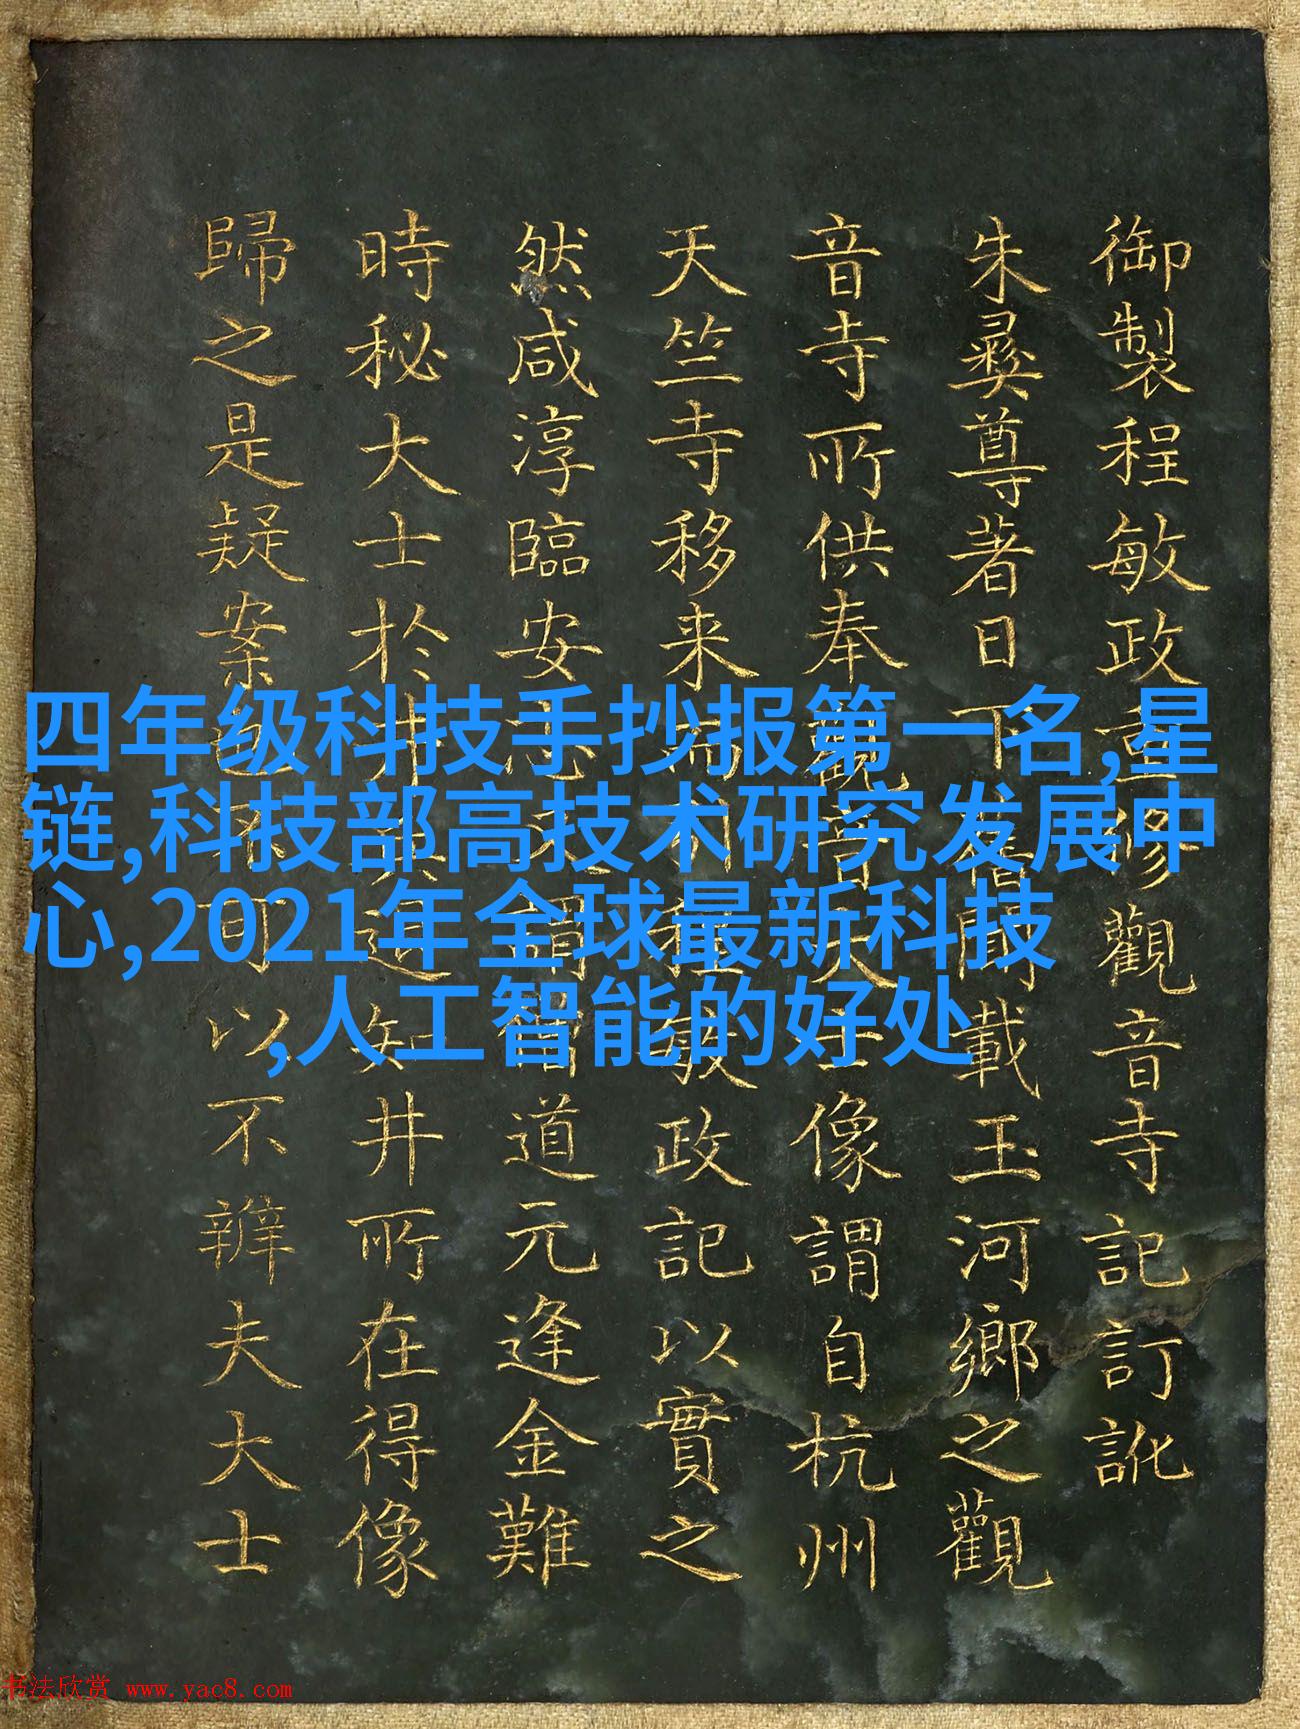 御製程敏政重修觀音寺記訂訛
朱彝尊著日下舊聞載玉河鄉之觀
音寺所供奉觀音大士像謂自杭州
天竺寺移来而引程敏政記以實之
然咸淳臨安志謂僧道元逢金難
時秘大士於井兵退知井所在得像
歸之是疑案也不可以不辨夫大士
四年级科技手抄报第一名,星
链,科技部高技术研究发展中
心,2021年全球最新科技
,人工智能的好处
书法欣赏 www.yac8.com